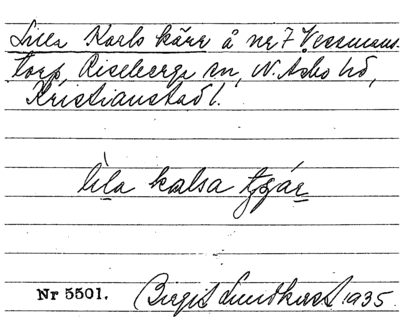 Lilla Karls kärr å nr 7 Vessmans-
torp, Riseberga sn, N. Åsbo hd,
Kristianstad l.
lìla kalsa tɟár
Nr 5501. Birgit Lundkvist 1935.